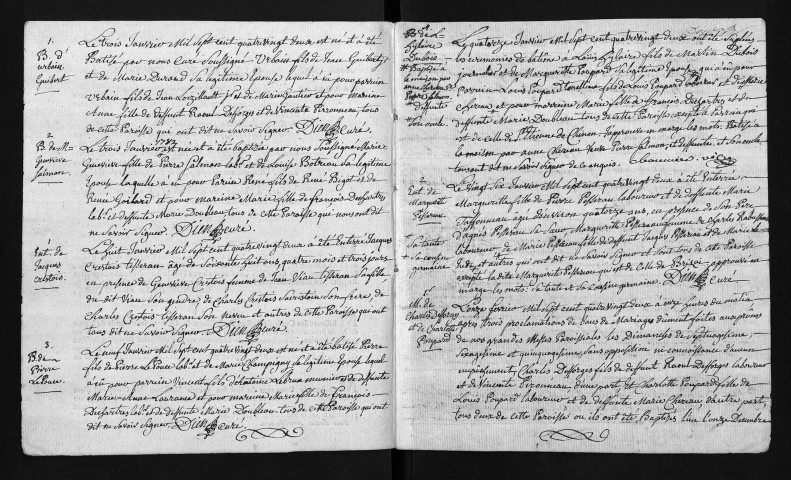 1.
B. d'
urbain
Guibert
Le trois Janvier Mil Sept cent quatre vingt deux est né et a été
Batisé par nous curé Soussigné Urbain fils de Jean Guibert
et de Marie Durand Sa legitime Epouse lequel a eu pour parrain
Urbain fils de Jean et de Marie Gautier et pour marraine
Anne fille de deffunt Raoul Desforges et de Vincente Pironneau, tous
de cette Paroisse qui ont dit ne Savoir Signer. Curé.
2
B. de M.
Genevieve
Salmon.
Le trois Janvier 1782 est née et a été baptisée par nous Soussigné Marie
Genevieve fille de Pierre Salmon labr. et de Louise Botreau Sa legitime
Epouse laquelle a eu pour Parein René fils de René Bigot et de
Renée Goilard et pour maraine Marie fille de françois Desfartres
labr. et deffunte Marie Doubleau tous de cette Paroisse qui nous ont dit
ne Savoir Signer. Curé.
1
Ent. de
Jacques
Crestois.
Le huit Janvier Mil Sept cent quatre vingt deux a été Enterré Jacques
Crestois tisseran agé de Soixante huit ans, quatre mois et trois jours
en presence de Genevieve Crestois femme de Jean Viau tisseran Sa fille
du dit Viau Son gendre, de Charles Crestois Sacristain Son frere, de
Charles Crestois tisseran Son neveu et autres de cette Paroisse qui ont
tous dit ne Savoir Signer. Curé
3.
B. de
Pierre
Le Roux.
Le neuf Janvier Mil Sept cent quatre vingt deux est né et a été batisé Pierre
fils de Pierre Le Roux labr. et de Marie Champigny Sa legitime Epouse lequel
a eu pour parrain Vincent fils d'Antoine Lebrun munier et de deffunte
Marie Anne et pour maraine Marie fille de François
Desfartres labr. et de deffunte Marie Doubleau tous de cette Paroisse qui ont
dit ne Savoir Signer. Curé.
B. de L.
Hylaire
Dubois
Baptisé a
la maison par
anne Chereau
deffunte
Le quatorze Janvier Mil Sept cent quatre vingt deux ont été Suplées
les ceremonies du batême a Louis Hylaire fils de Martin Dubois
journalier et de Marguerite Poupard Sa legitime Epouse, qui a eu pour
Parrain Louis Poupard fils de Louis Poupard laboureur et de Marie
Chereau et pour marraine Marie fille de François Desfartres et de
deffunte Marie Doubleau tous de cette Paroisse excepté le Parrain qui
est de celle de St. Etienne de Chinon. Japrouve en marge les mots. Batisé a
la maison par anne Chereau Pierre Salmon, et deffunte, et Ensemble
tous ont dit ne Savoir Signer de ce enquis.
2
Ent. de
Marguerite
Pesseau
Sa tante
et Sa cousine
germaine
Le vingt Six Janvier Mil Sept cent quatre vingt deux a été Enterré
Marguerite fille de Pierre Pesseau laboureur et de deffunte Marie
agée d'environ quatorze ans, en presence de Son Pere
d'agnès Pesseau Sa Sœur, Marguerite Pesseau femme de Charles
laboureur, de Marie Pesseau fille de deffunt Jacques Pesseau et de Marie
et autres qui ont dit ne Savoir Signer et Sont tous de cette Paroisse
excepté la dite Marguerite Pesseau qui est de celle de Brizai approuvé en
marge les mots: Sa tante et Sa cousine germaine. Curé
1er
M. de
Charles Desforges
et de Charlotte
Poupard
L'onze fevrier Mil Sept cent quatre vingt deux a onze heures du matin
après trois proclamations de bans de Mariages duement faites aux prônes
de nos grandes Messes Paroissiales les Dimanches de Septuagesime,
Sexagesime et quinquagesime, Sans opposition ni connoissance d'aucun
empêchement, Charles Desforges fils de deffunt Raoul Desforges laboureur
et de Vincente Pironneau d'une part, et Charlotte Poupard fille de
Louis Poupard laboureur et de deffunte Marie Chereau d'autre part,
tous deux de cette Paroisse où ils ont été Baptisés l'un l'onze Decembre